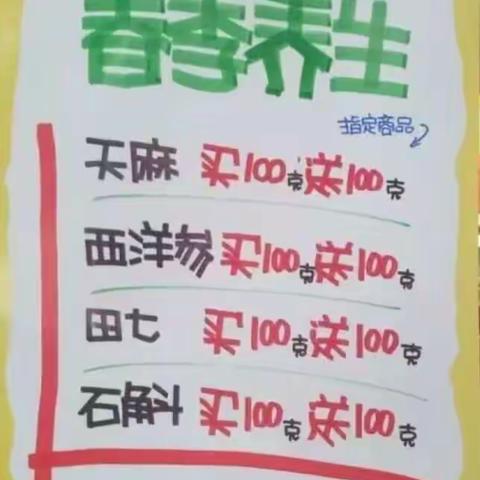 春季养生
指定商品
天麻 买100克送100克
西洋参 买100克送100克
田七 买100克送100克
石斛 买100克送100克